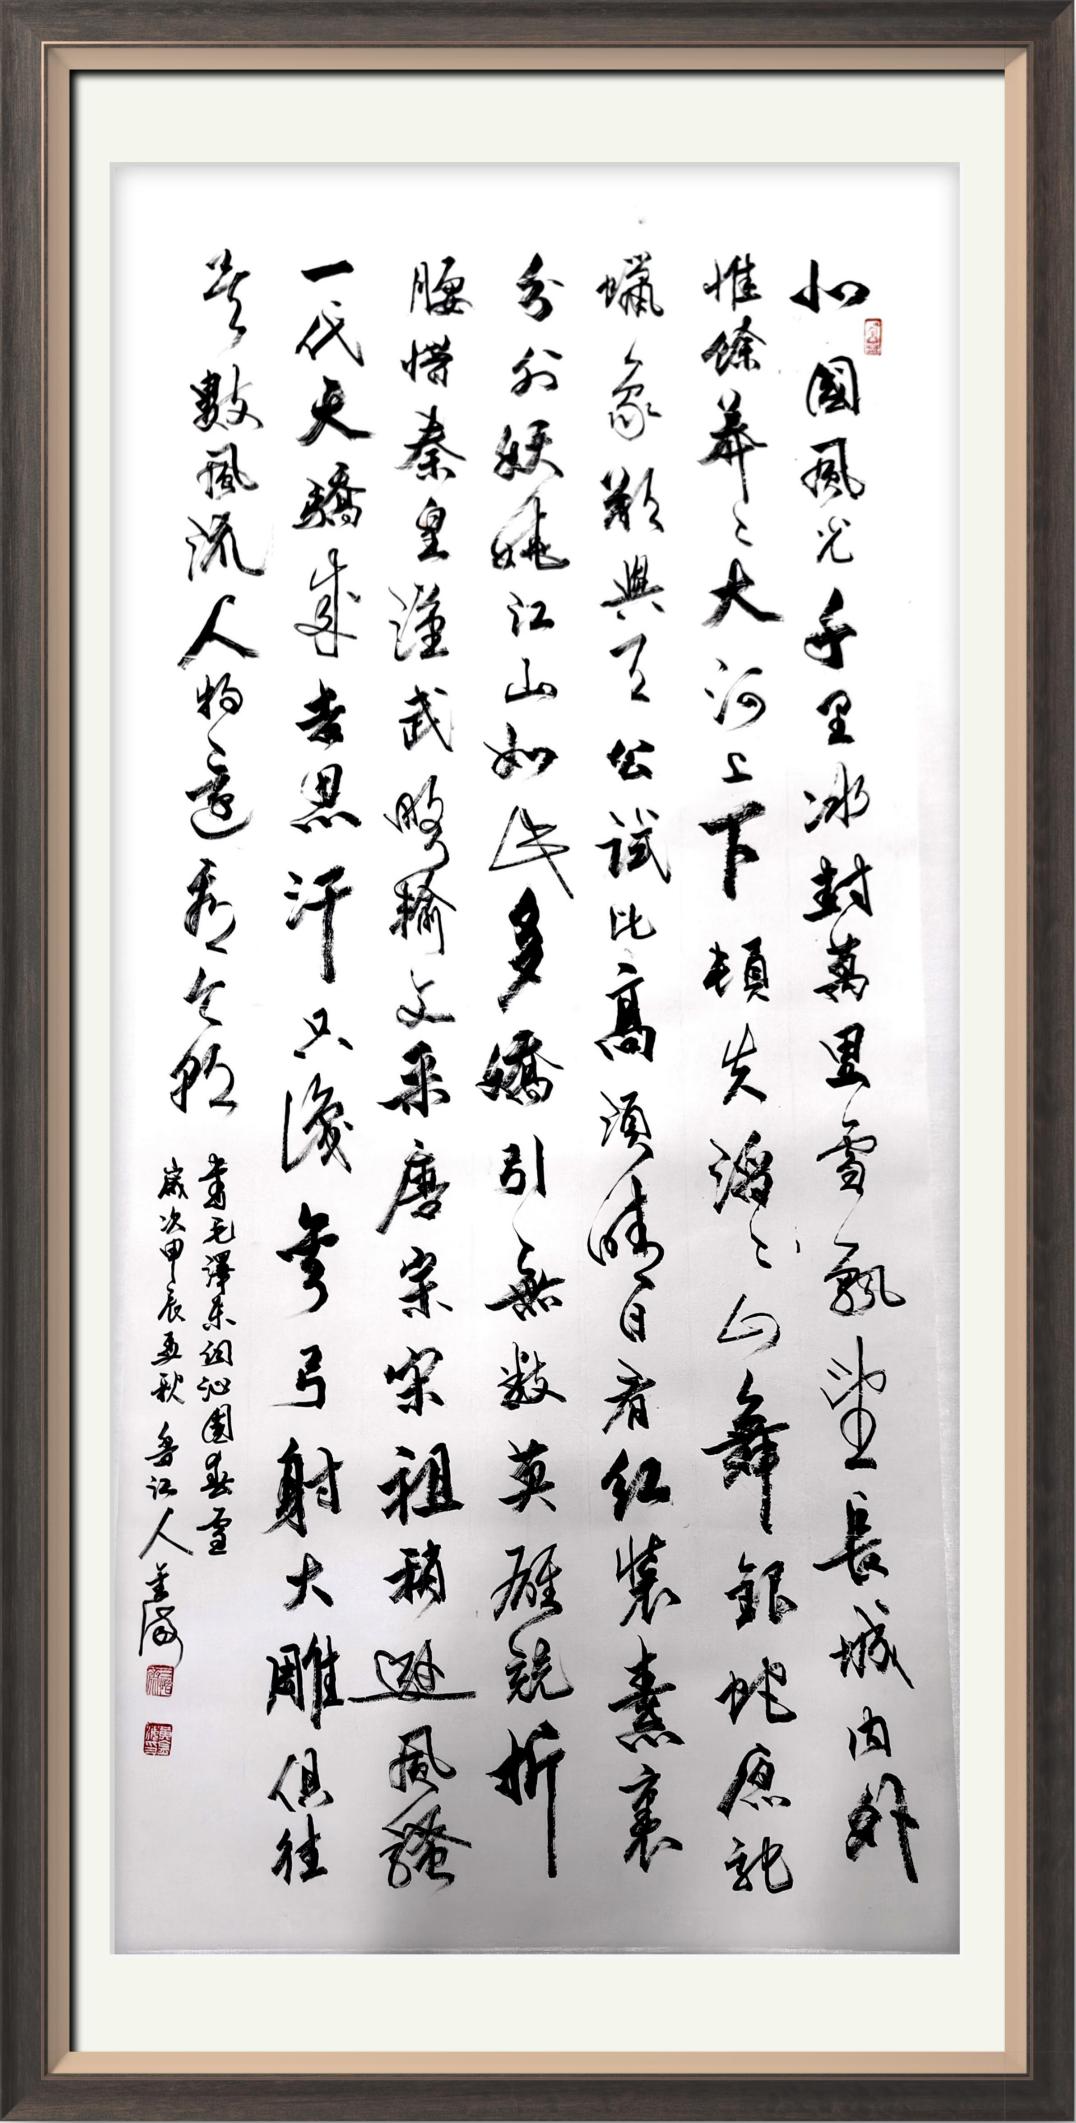 北國風光千里冰封萬里雪飄望長城内外
惟馀莽々大河上下頓失滔々山舞銀蛇原馳
蠟象欲與天公試比高須晴日看红裝素裹
分外妖嬈江山如此多嬌引無数英雄競折
腰惜秦皇漢武略輸文采唐宗宋祖稍遜風騷
一代天驕成吉思汗只識彎弓射大雕俱往
矣數風流人物還看今朝
書毛澤東詞沁園春雪
歲次甲辰孟秋 魯江人